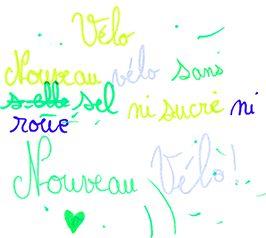 Vélo
Nouveau vélo sans
selle sel ni sucre ni
roue
Nouveau Vélo!